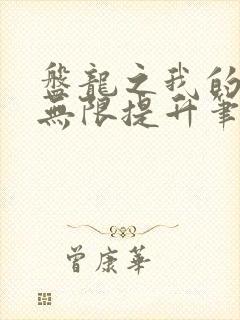 盤龍之我的
無限提升筆
曾康華